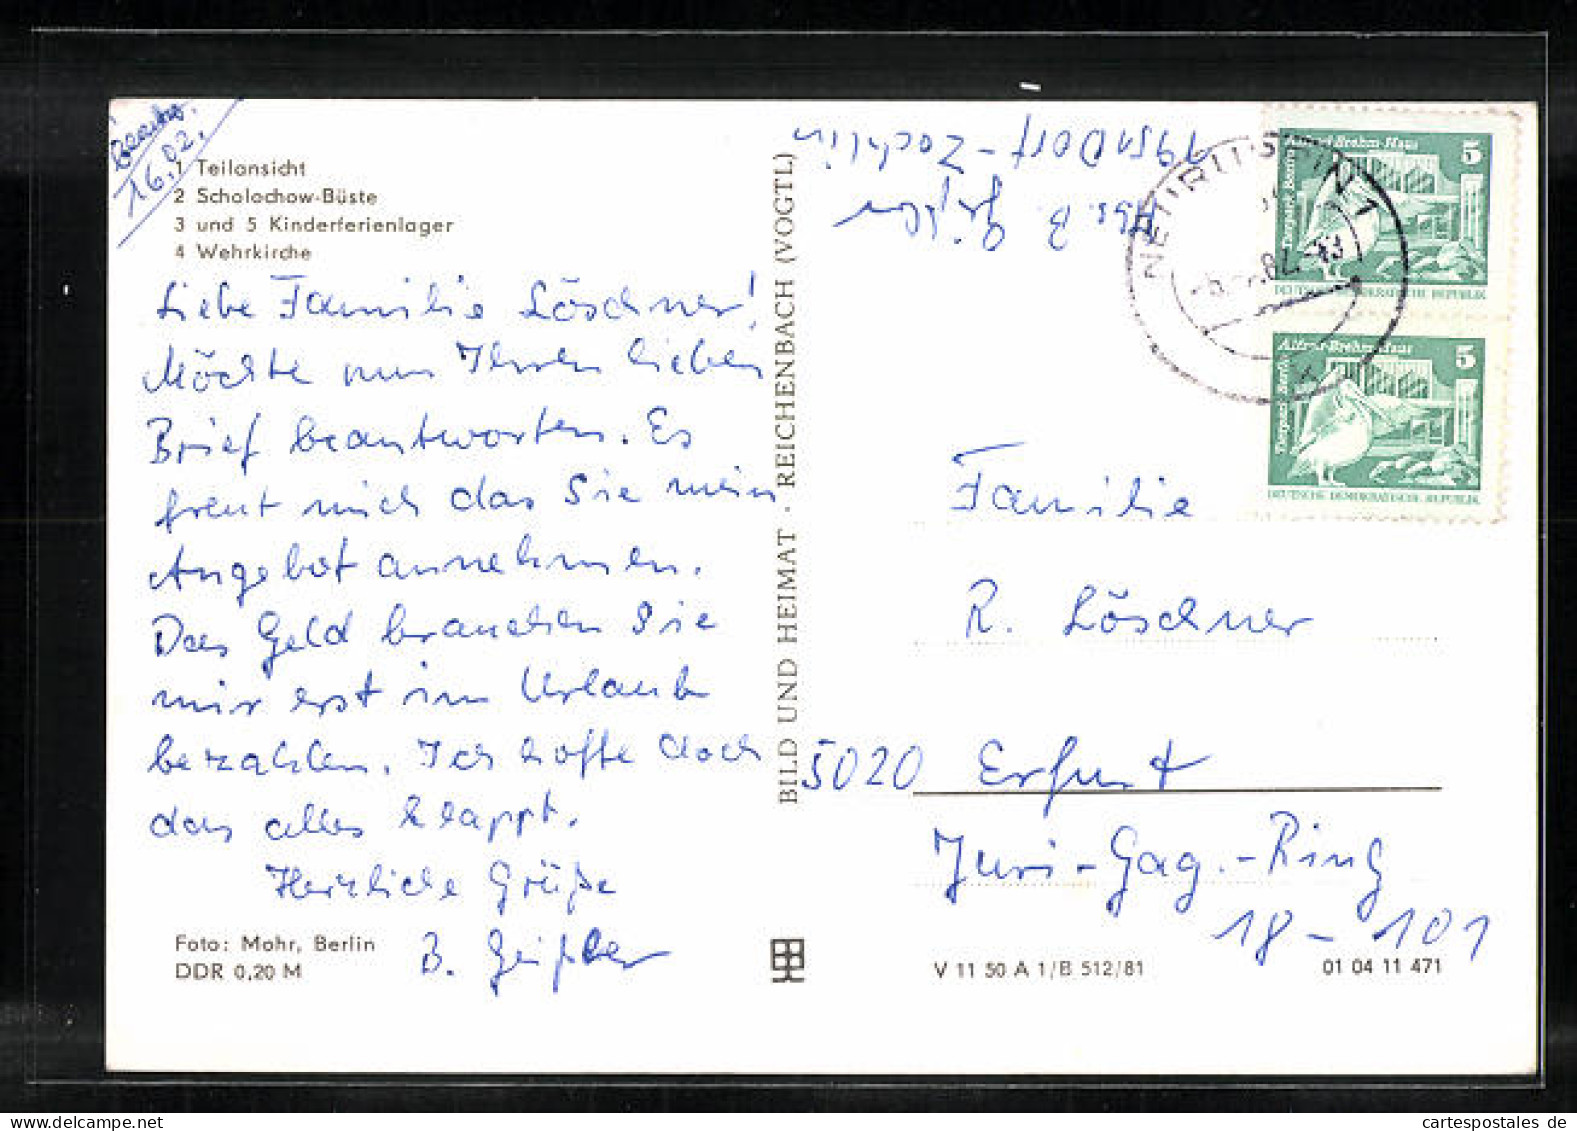 16.02.
1 Teilansicht
2 Scholochow-Büste
3 und 5 Kinderferienlager
4 Wehrkirche
Liebe Familie Löschner!
Möchte nun Ihren lieben
Brief beantworten. Es
freut mich das Sie mein
Angebot annehmen.
Das Geld brauchen Sie
mir erst im Urlaub
bezahlen. Ich hoffe doch
das alles klappt.
Herzliche Grüße
B. Geißler
Foto: Mohr, Berlin
DDR 0,20 M
BILD UND HEIMAT · REICHENBACH (VOGTL)
Abs. B. Geißler
1951 Dorf-Zechlin
NEURUPPIN 1
Alfred-Brehm-Haus
5
Tierpark Berlin
DEUTSCHE DEMOKRATISCHE REPUBLIK
Alfred-Brehm-Haus
5
Tierpark Berlin
DEUTSCHE DEMOKRATISCHE REPUBLIK
Familie
R. Löschner
5020 Erfurt
Juri-Gag.-Ring
18-101
V 11 50 A 1/B 512/81
01 04 11 471
cartespostales de